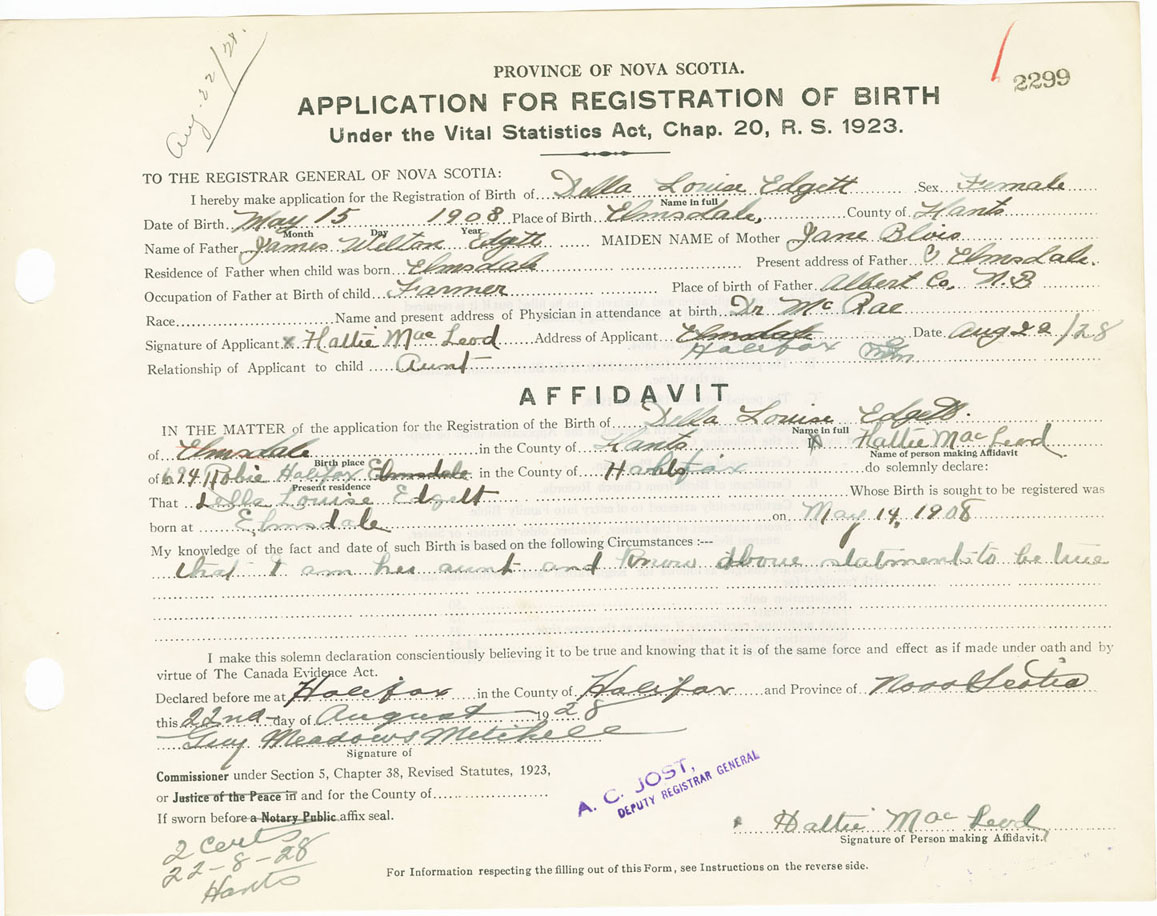 Aug. 22/28.
PROVINCE OF NOVA SCOTIA.
2299
APPLICATION FOR REGISTRATION OF BIRTH
Under the Vital Statistics Act, Chap. 20, R. S. 1923.
TO THE REGISTRAR GENERAL OF NOVA SCOTIA:
I hereby make application for the Registration of Birth of Della Louise Edgett Sex Female
Name in full
Date of Birth May 15 1908 Place of Birth Elmsdale, County of Hants
Month Day Year
Name of Father James Welton Edgett MAIDEN NAME of Mother Jane Blois
Residence of Father when child was born Elmsdale Present address of Father Elmsdale.
Occupation of Father at Birth of child Farmer Place of birth of Father Albert Co, N.B
Race Name and present address of Physician in attendance at birth Dr McRae
Signature of Applicant x Hattie MacLeod Address of Applicant Elmsdale Date Aug 22/28
Halifax
Relationship of Applicant to child Aunt
AFFIDAVIT
IN THE MATTER of the application for the Registration of the Birth of Della Louise Edgett.
Name in full
of Elmsdale in the County of Hants I, Hattie MacLeod
Birth place Name of person making Affidavit
of 694 Robie Halifax Elmsdale in the County of Halifax do solemnly declare:
Present residence
That Della Louise Edgett Whose Birth is sought to be registered was
born at Elmsdale on May 14, 1908
My knowledge of the fact and date of such Birth is based on the following Circumstances :---
that I am her aunt and know above statements to be true
I make this solemn declaration conscientiously believing it to be true and knowing that it is of the same force and effect as if made under oath and by
virtue of The Canada Evidence Act.
Declared before me at Halifax in the County of Halifax and Province of Nova Scotia
this 22nd day of August 1928
Guy Meadows Mitchell
Signature of
Commissioner under Section 5, Chapter 38, Revised Statutes, 1923,
or Justice of the Peace in and for the County of
If sworn before a Notary Public affix seal.
A. C. JOST,
DEPUTY REGISTRAR GENERAL
2 Certs
22-8-28
Hants
x Hattie MacLeod
Signature of Person making Affidavit.
For Information respecting the filling out of this Form, see Instructions on the reverse side.